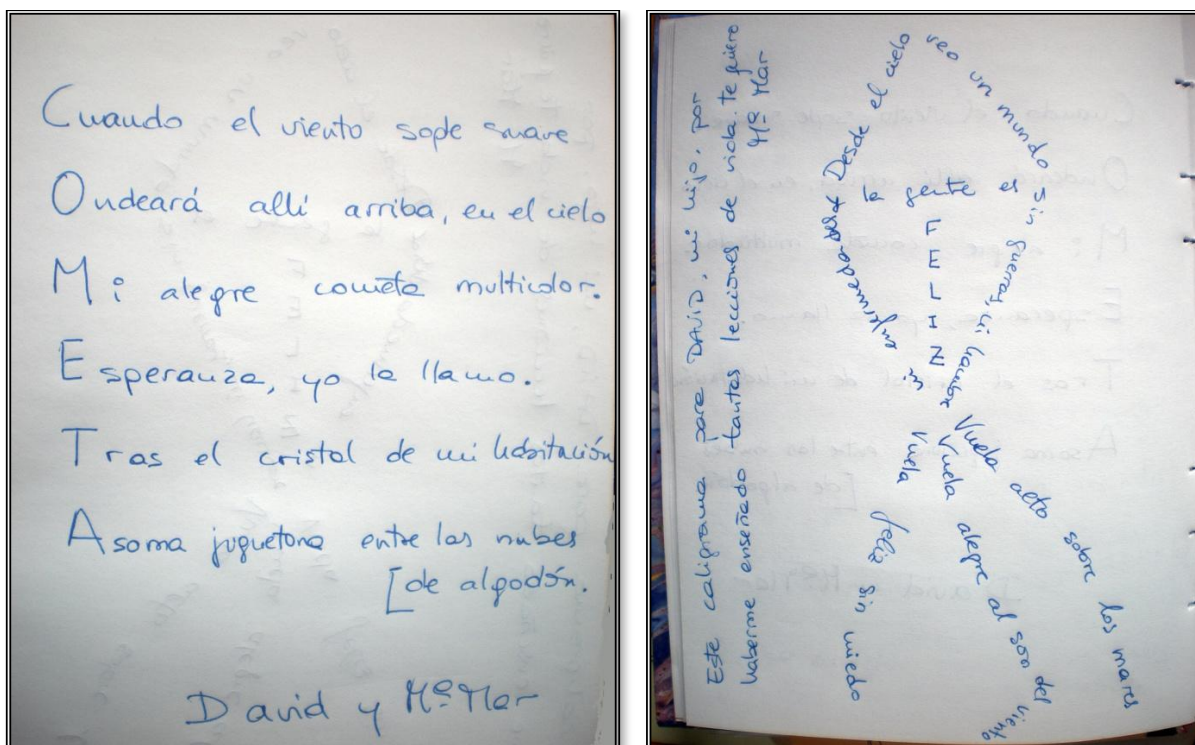 Cuando el viento sople suave
Ondeará allí arriba, en el cielo
Mi alegre cometa multicolor.
Esperanza, yo la llamo.
Tras el cristal de mi habitación
Asoma juguetona entre las nubes
[de algodón.
David y Mª Mar
Este caligrama para DAVID, mi hijo, por
haberme enseñado tantas lecciones de vida, te quiero
Mª Mar
Desde el cielo
veo un mundo sin guerras, ni hambre
ni enfermedades
la gente es
FELIZ
Vuela alto sobre los mares
Vuela alegre al son del viento
Vuela feliz sin miedo